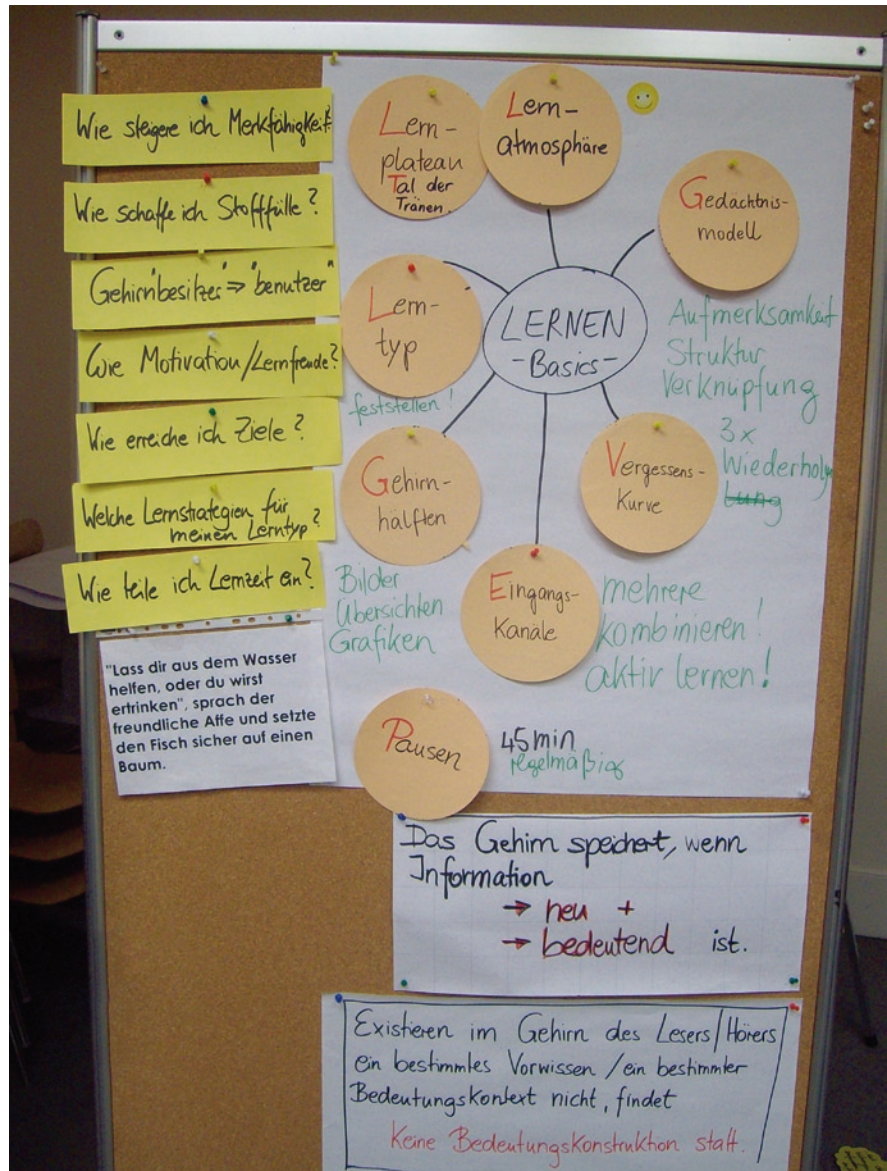 Wie steigere ich Merkfähigkeit?
Wie schaffe ich Stofffülle?
Gehirn"besitzer" => "benutzer"
Wie Motivation/Lernfreude?
Wie erreiche ich Ziele?
Welche Lernstrategien für
meinen Lerntyp?
Wie teile ich Lernzeit ein?
"Lass dir aus dem Wasser
helfen, oder du wirst
ertrinken", sprach der
freundliche Affe und setzte
den Fisch sicher auf einen
Baum.
Lern-
plateau
Tal der
Tränen.
Lern-
atmosphäre
Gedächtnis-
modell
LERNEN
-Basics-
Lern-
typ
feststellen!
Aufmerksamkeit
Struktur
Verknüpfung
3x
Wiederholg
lung
Gehirn-
hälften
Bilder
Übersichten
Grafiken
Vergessens-
Kurve
Eingangs-
Kanäle
mehrere
kombinieren!
aktiv lernen!
Pausen
45min
regelmäßig
Das Gehirn speichert, wenn
Information
→ neu +
→ bedeutend ist.
Existieren im Gehirn des Lesers/Hörers
ein bestimmtes Vorwissen / ein bestimmter
Bedeutungskontext nicht, findet
Keine Bedeutungskonstruktion statt.